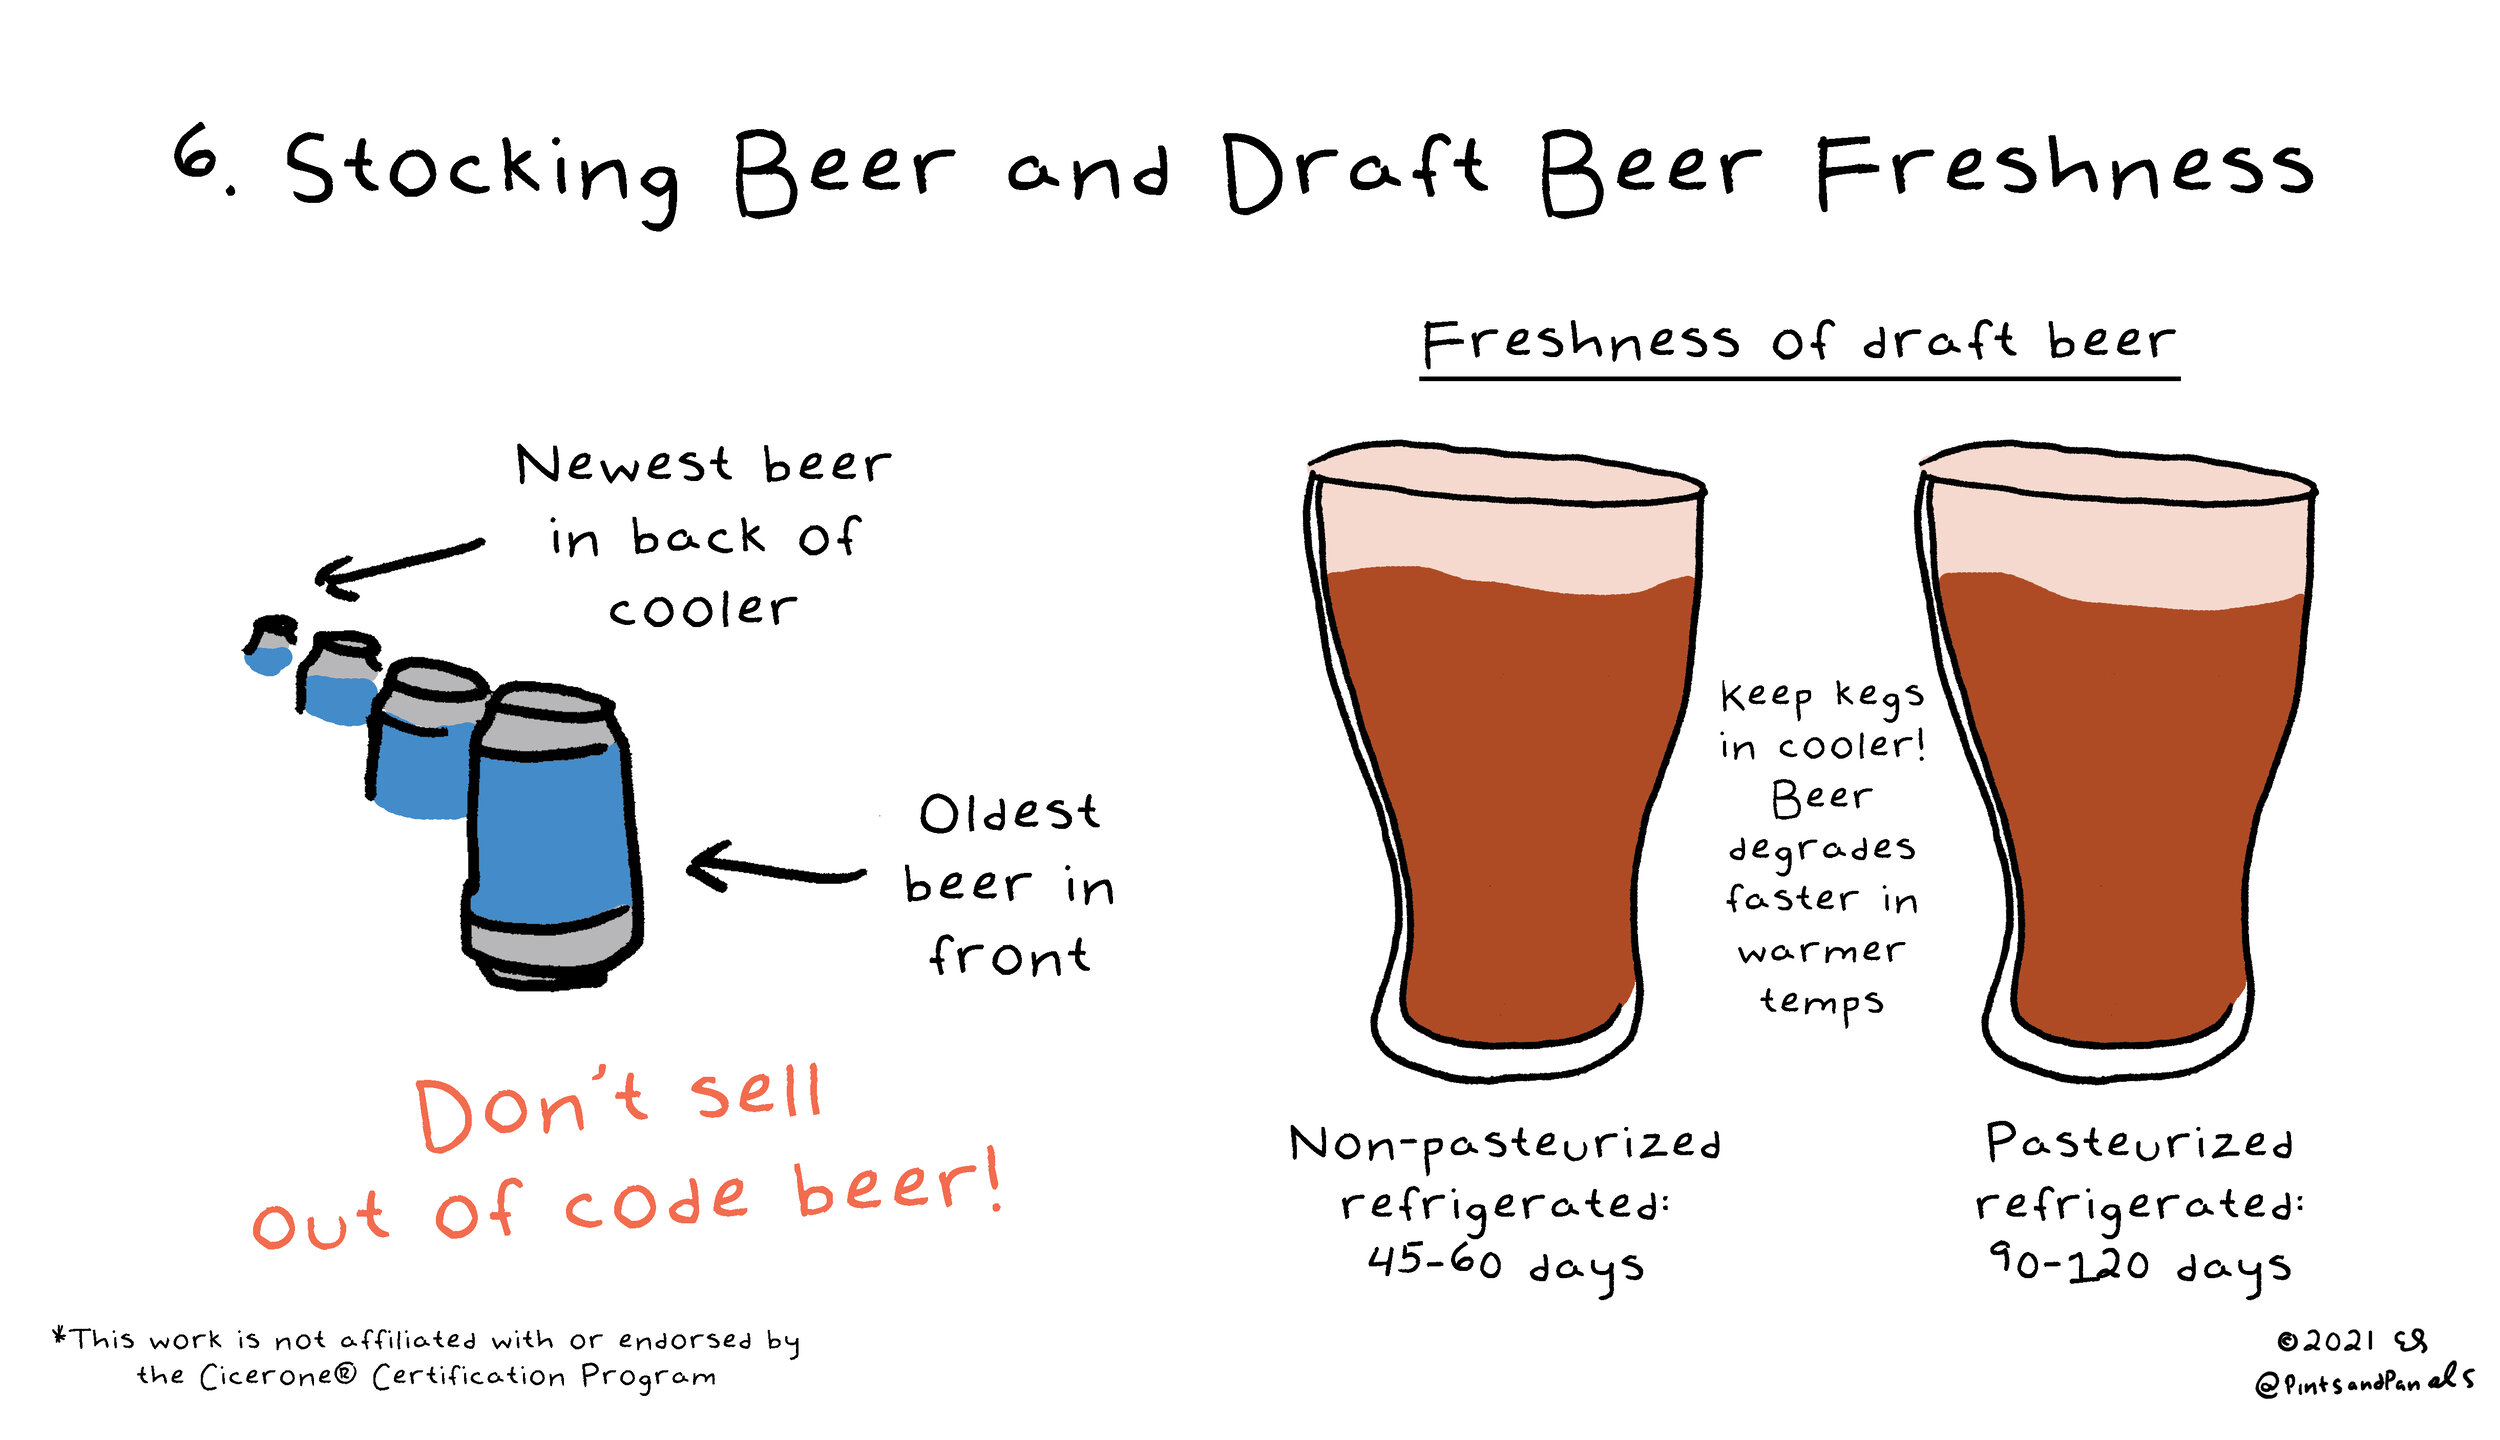 6. Stocking Beer and Draft Beer Freshness
Newest beer
in back of
cooler
Oldest
beer in
front
Don't sell
out of code beer!
Freshness of draft beer
Keep kegs
in cooler!
Beer
degrades
faster in
warmer
temps
Non-pasteurized
refrigerated:
45-60 days
Pasteurized
refrigerated:
90-120 days
*This work is not affiliated with or endorsed by
the Cicerone® Certification Program
©2021 ES
@PintsandPanels